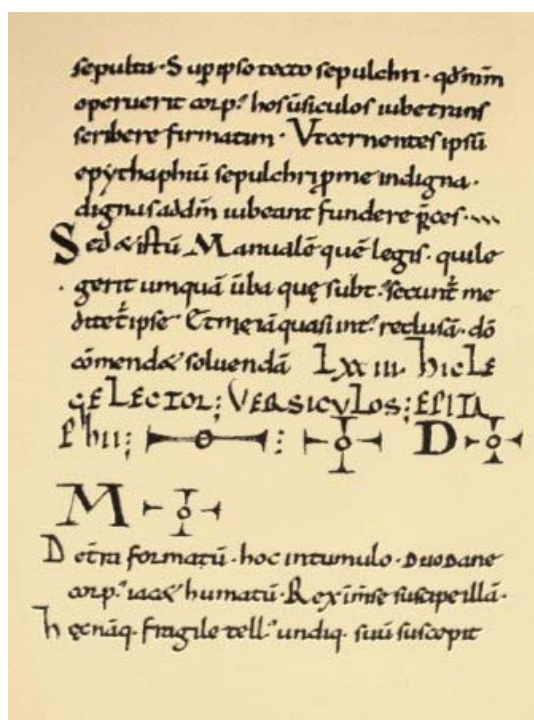 sepulta· Sup̄ ipso tecto sepulchri· qđ m̄m
operuerit corp᾿ hos ūsiculos iube trans
scribere firmatim· Vt cernentes ipsū
epẏthaphiū sepulchri ꝓ me indigna·
dignas ad dm̄ iubeant fundere p̄ces·
Sed & istū Manualē quē legis· qui le
gerit umquā ūba quę subt᾿ secunt̄ me
ditet̄ ipse· Et me iā quasi int᾿ reclusā· dō
cōmend& soluendā LXXIII· hIC LE
GE LECTOR; VERSICVLOS; EPITA
PhII; D
M
De t̄ra formatū· hoc in tumulo· DUODANE
corp᾿ iac& humatū· Rex im̄se suscipe illā·
hęc nāq· fragile tell᾿ undiq· suū suscepit